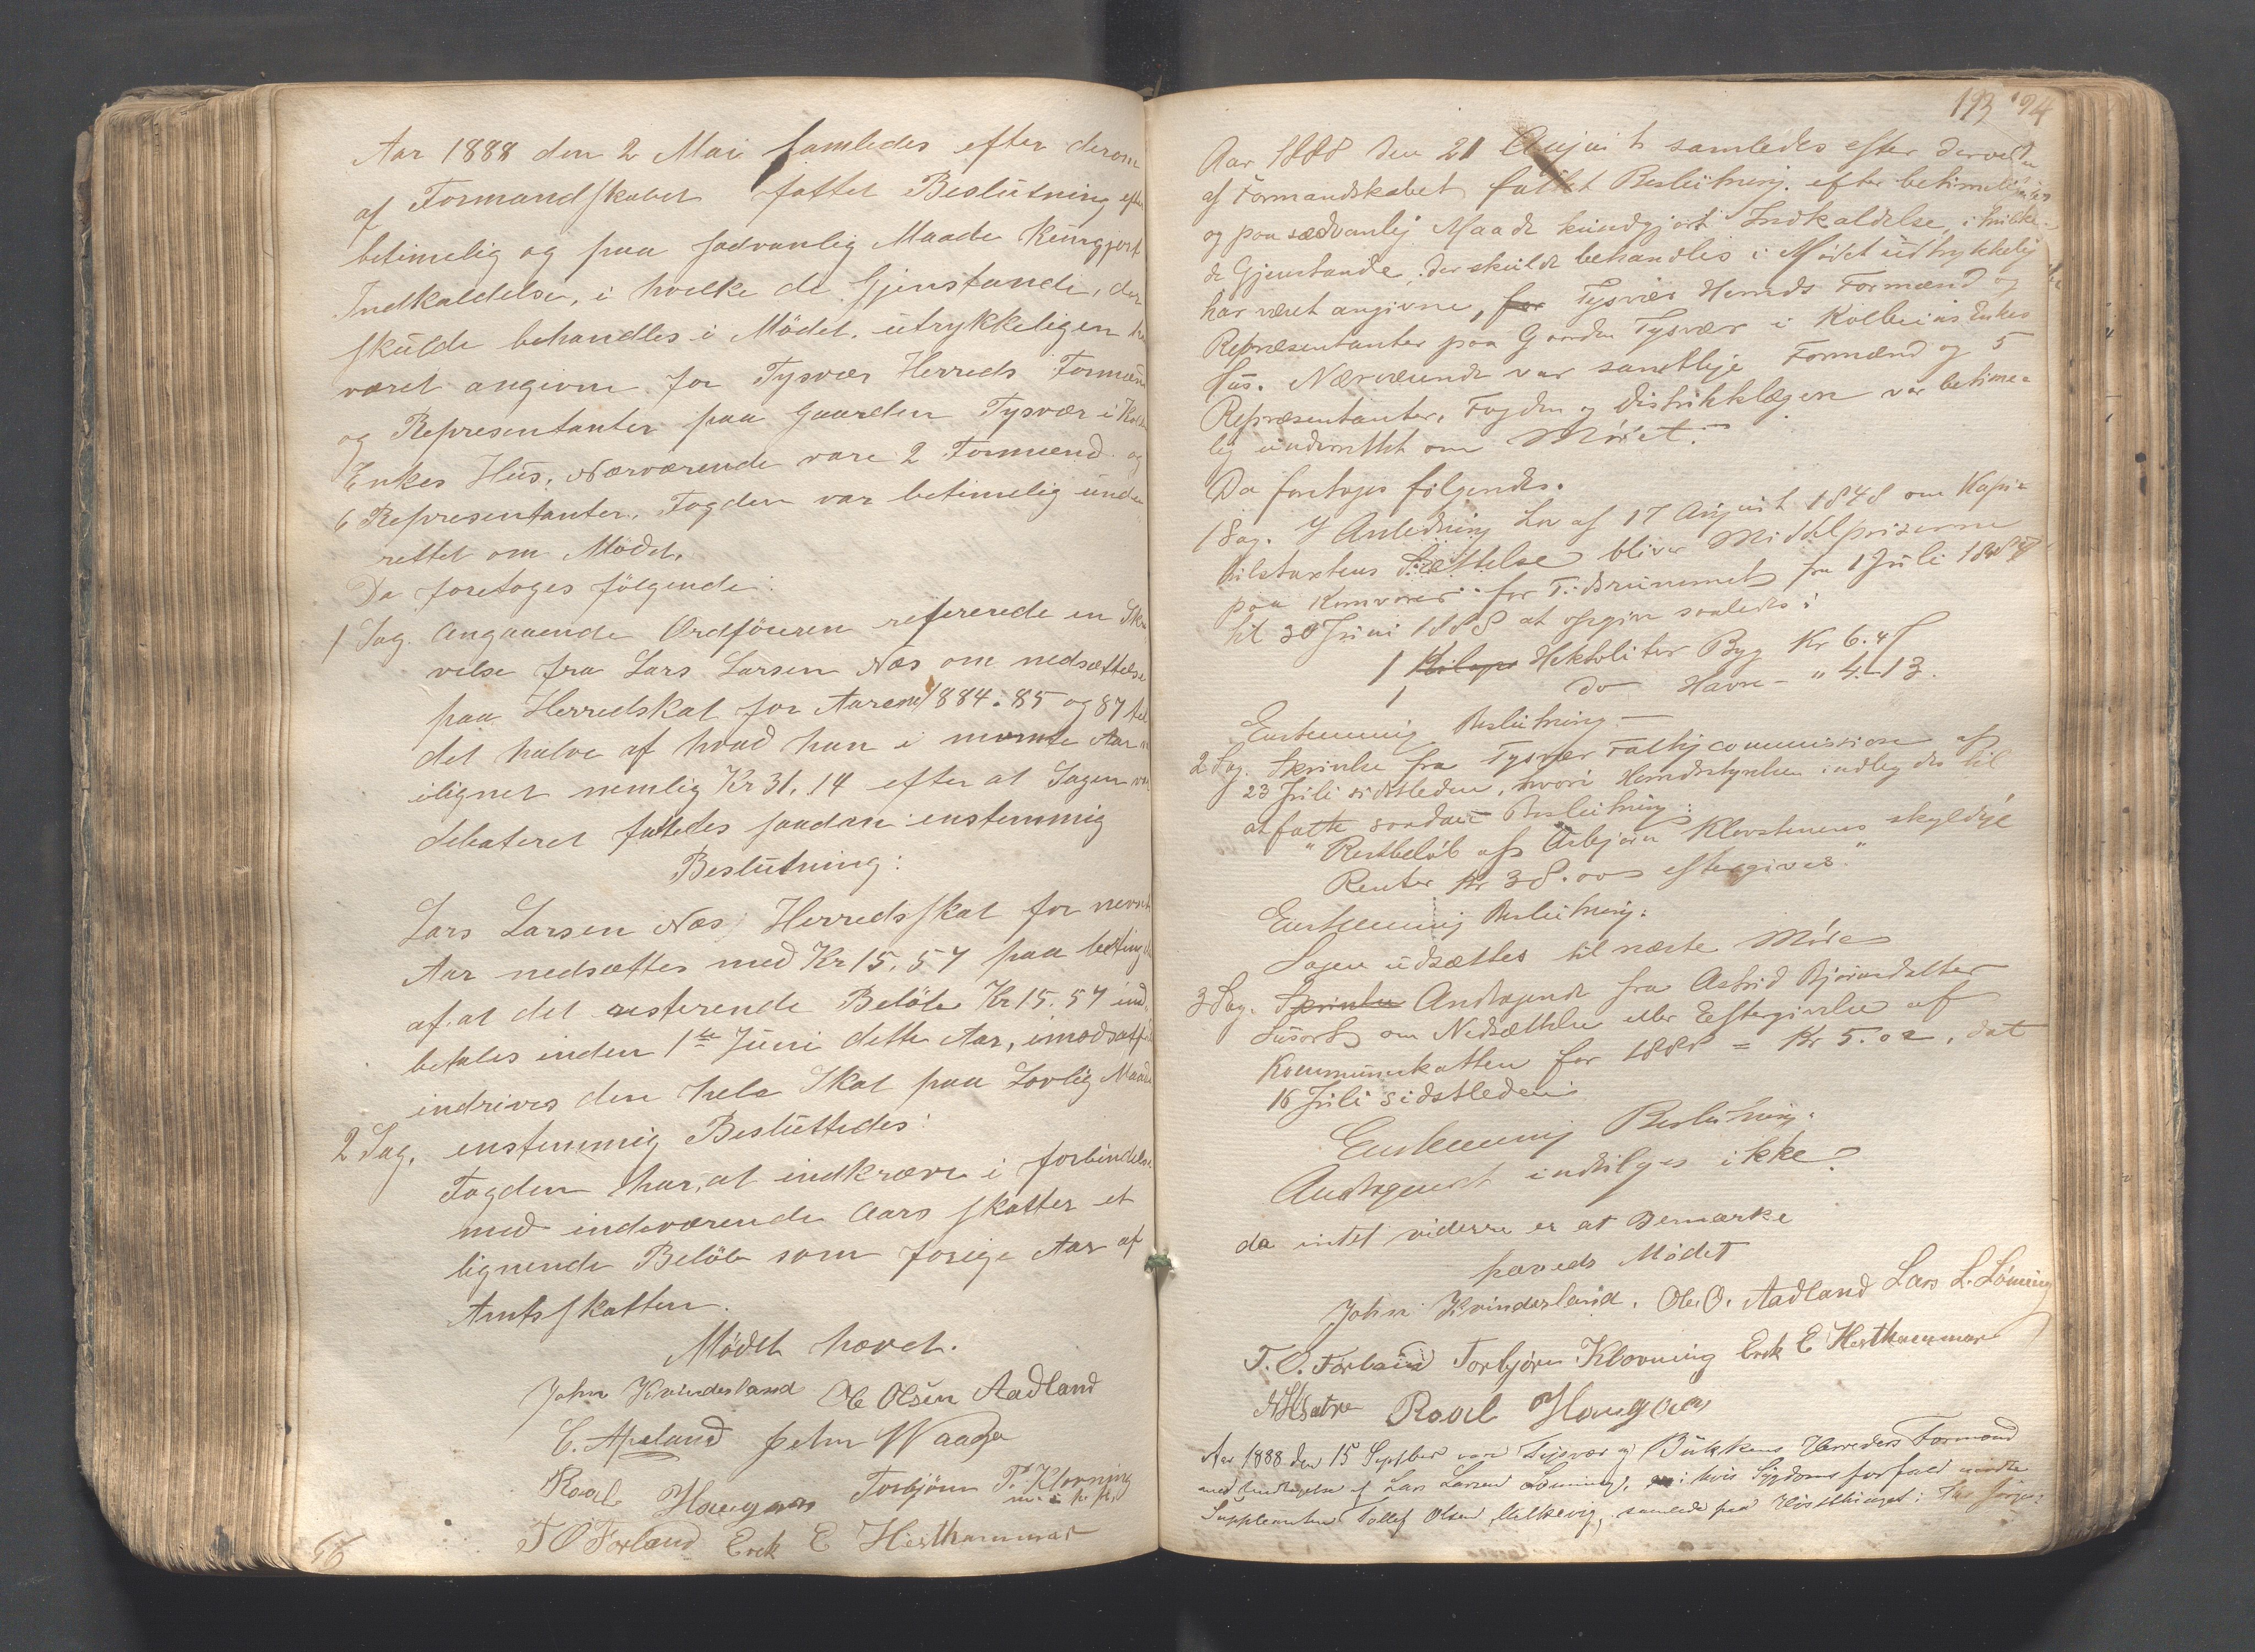 Aar 1888 den 2 Mai samledes efter derom
af Formandskabet fattet Beslutning efter
betimelig og paa sædvanlig Maade Kungjort
Indkaldelse, i hvilke de Gjenstande, der
skulde behandles i Mödet, utrykkeligen har
været angivne for Tysvær Herreds Formænd
og Representanter paa Gaarden Tysvær i
Enkes Hus. Nærværende vare 2 Formænd og
6 Representanter. Fogden var betimelig under
rettet om Mödet.
Da foretoges fölgende:
1 Sag. Angaaende Ordföreren refererede en Skri
velse fra Lars Larsen Næs om nedsættelse
paa Herredskat for Aarene 1884. 85 og 87 til
det halve af hvad han i nævnte Aar er
ilignet nemlig Kr 31.14 efter at Sagen var
debateret fattedes saadan enstemmig
Beslutning:
Lars Larsen Næs Herredsskat for nevnte
Aar nedsættes med Kr 15.57 paa beting
af at det resterende Belöb Kr 15.57 ind
betales inden 1ste Juni dette Aar, imodsatfald
indrives den hele Skat paa Lovlig Maade
2 Sag. enstemmig Besluttedes:
Fogden har at indkræve i forbindelse
med indeværende Aars skatter et
lignende Belöb som forige Aar af
Amtsskatten.
Mödet hævet.
John Kvinderland Ole Olsen Aadland
C. Apeland John Waage
Roal Haugaas Torbjörn T. Klovning
m. i. p. p.
T O Forland Erek E Hesthammar
56
193 194
Aar 1888 den 21 August samledes efter derved
af Formandskabet fattet Beslutning, efter betimelig
og paa sædvanlig Maade kundgjort Indkaldelse, i hvilke
de Gjenstande, der skulde behandles i Mödet udtrykkelig
har været angivne, for Tysvær Herreds Formænd og
Repræsentanter paa Gaarden Tysvær i Kolbeins Enkes
Hus. Nærværende var samtlige Formænd og 5
Repræsentanter. Fogden og Distriktslægen var betime-
lig underrettet om Mödet.
Da foretoges fölgende.
1 Sag. I Anledning Lov af 17 August 1848 om Kapi-
telstaxtens Sættelse bliver Middelpriserne
paa Kornvarer for Tidsrummet fra 1 Juli 1887
til 30 Juni 1888 at opgive saaledes:
1 Hektoliter Byg Kr 6.48
1 do Havre - " 4.13.
Enstemmig Beslutning.
2 Sag. Skrivelse fra Tysvær Fattigcommission af
23 Juli sidstleden, hvori Herredsstyrelsen indbydes til
at fatte saadan Beslutning:
"Restbelöb af Asbjörn Klovstenens skyldige
Renter Kr 38.00 eftergives."
Enstemmig Beslutning:
Sagen udsættes til næste Möde
3 Sag. Skrivelse Andragende fra Astrid Björnsdatter
Susort om Nedsættelse eller Eftergivelse af
Kommuneskatten for 1888 = Kr 5.02, dat
16 Juli sidstleden
Enstemmig Beslutning:
Andragendet indvilges ikke.
da intet viderre er at Bemærke
hæveds Mödet
John Kvinderland. Ole O. Aadland Lars L. Lönning
T. O. Forland Torbjörn Klovning Erek E Hesthammar
Roal Haugaas
Aar 1888 den 15 Septbr vare Tysvær og Bukkens Herreders Formænd
med Undtagelse af Lars Larsen Lönning, i hvis Sygdomsforfald mödte
Suppleanten Tollef Olsen samlede paa Höstthinget i